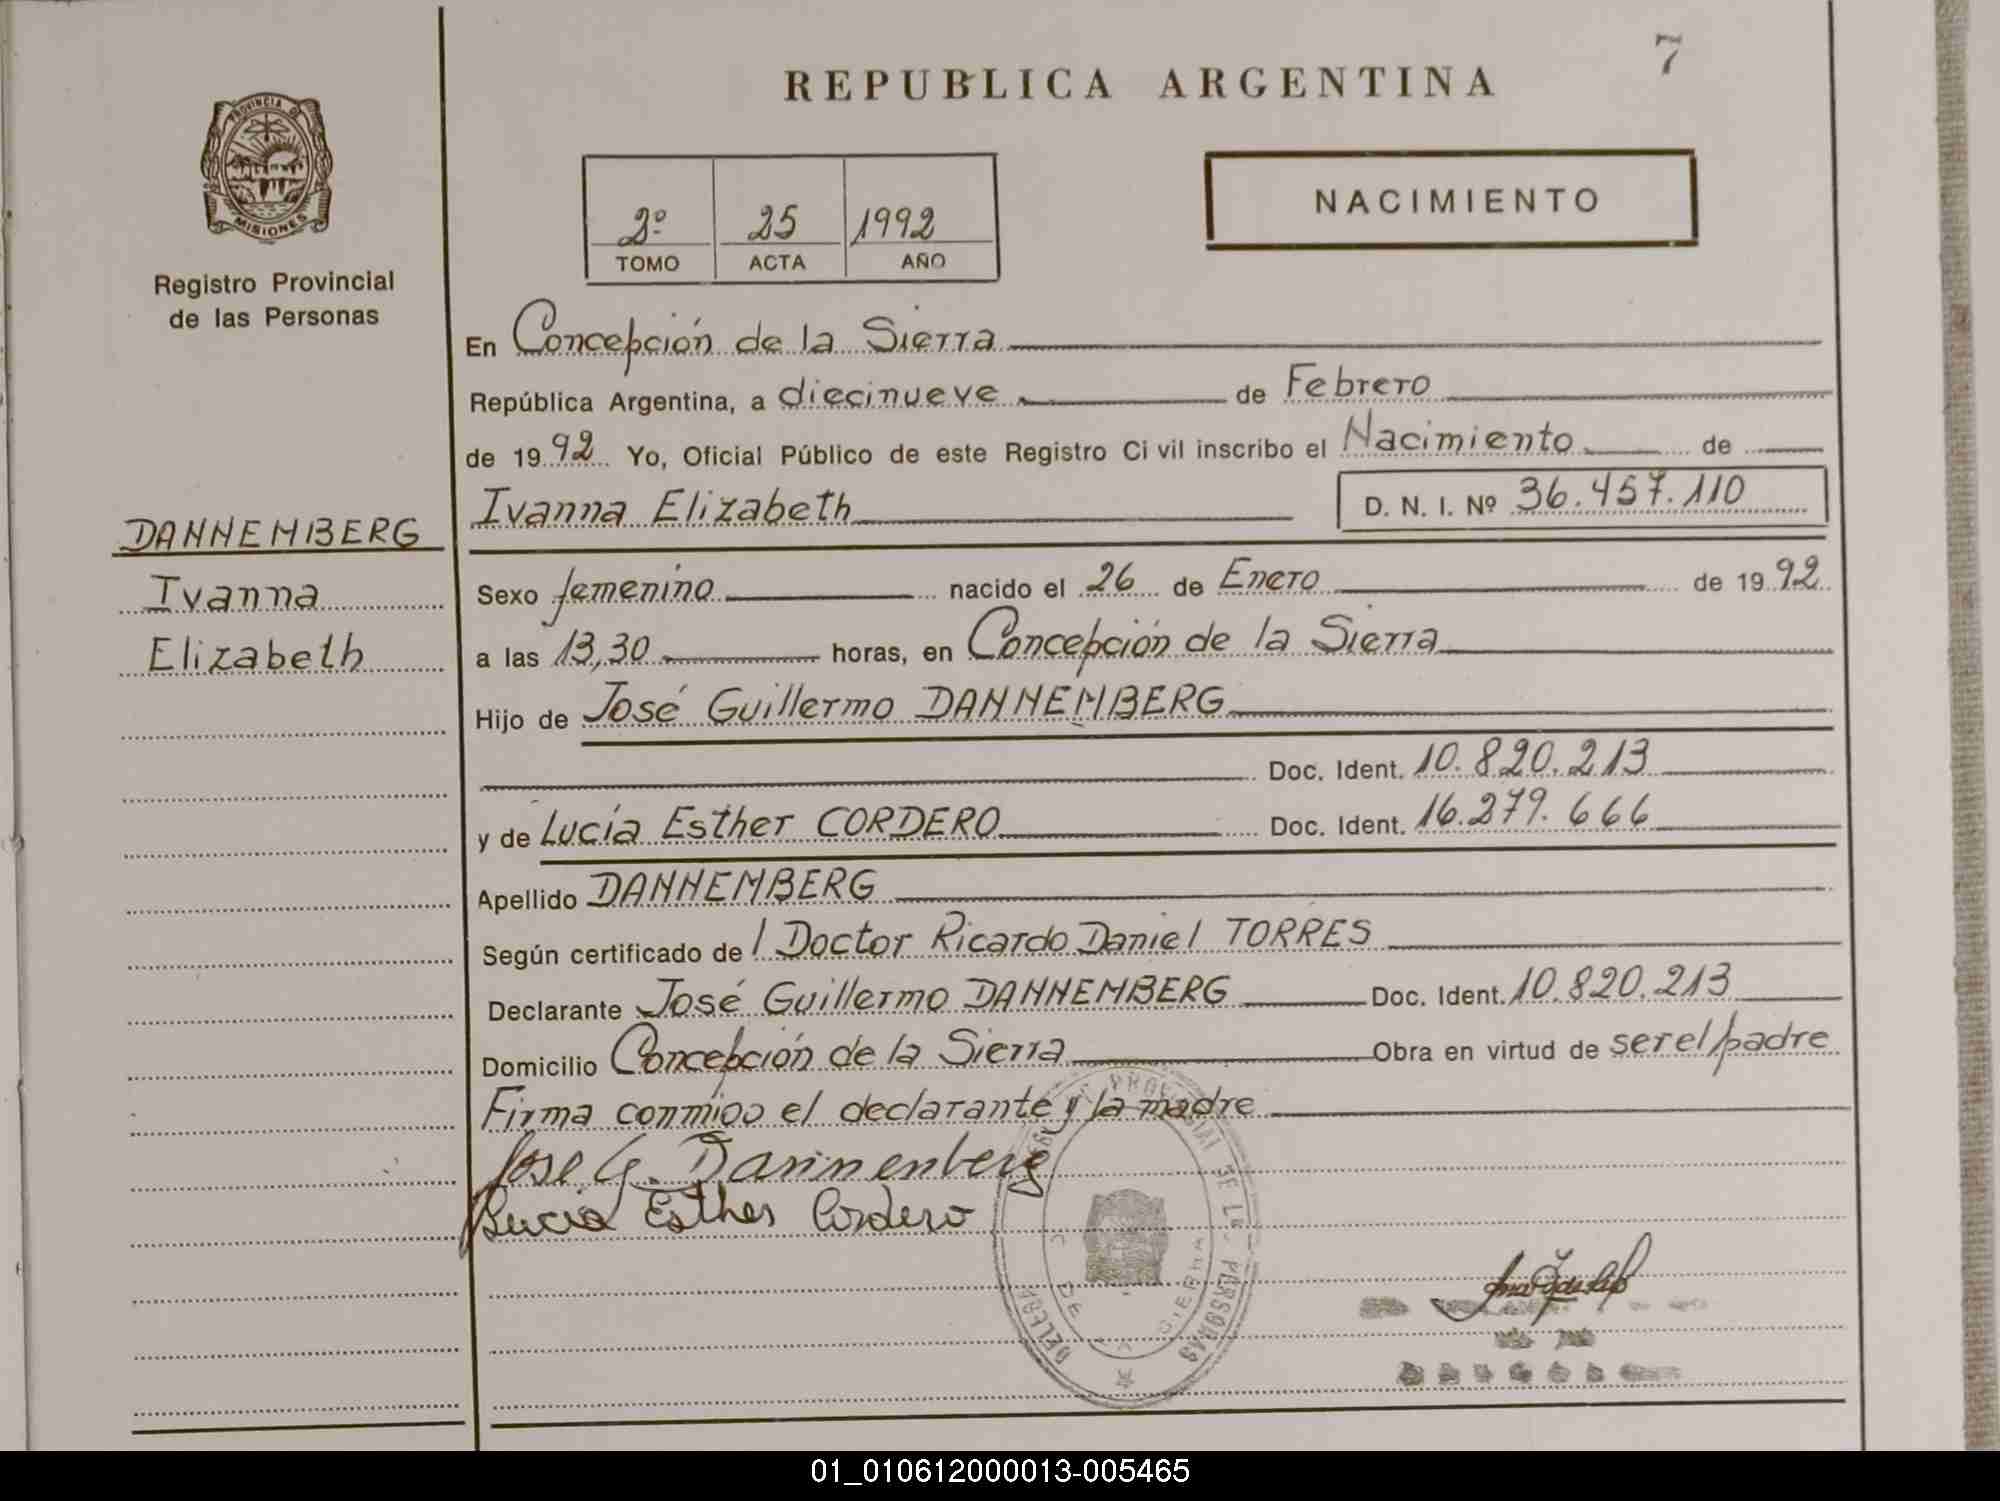 7
REPUBLICA ARGENTINA
PROVINCIA DE
MISIONES
Registro Provincial
de las Personas
2º 25 1992
TOMO ACTA AÑO
NACIMIENTO
En Concepción de la Sierra
República Argentina, a diecinueve de Febrero
de 1992 Yo, Oficial Público de este Registro Civil inscribo el Nacimiento de
Ivanna Elizabeth D. N. I. Nº 36.457.110
DANNEMBERG
Ivanna
Elizabeth
Sexo femenino nacido el 26 de Enero de 1992
a las 13,30 horas, en Concepción de la Sierra
Hijo de José Guillermo DANNEMBERG
Doc. Ident. 10.820.213
y de Lucía Esther CORDERO Doc. Ident. 16.279.666
Apellido DANNEMBERG
Según certificado de l Doctor Ricardo Daniel TORRES
Declarante José Guillermo DANNEMBERG Doc. Ident. 10.820.213
Domicilio Concepción de la Sierra Obra en virtud de ser el padre
Firma conmigo el declarante y la madre
Jose G. Dannenberg
Lucia Esther Cordero
PROVINCIAL DE LAS PERSONAS
DE SIERRA
01_010612000013-005465